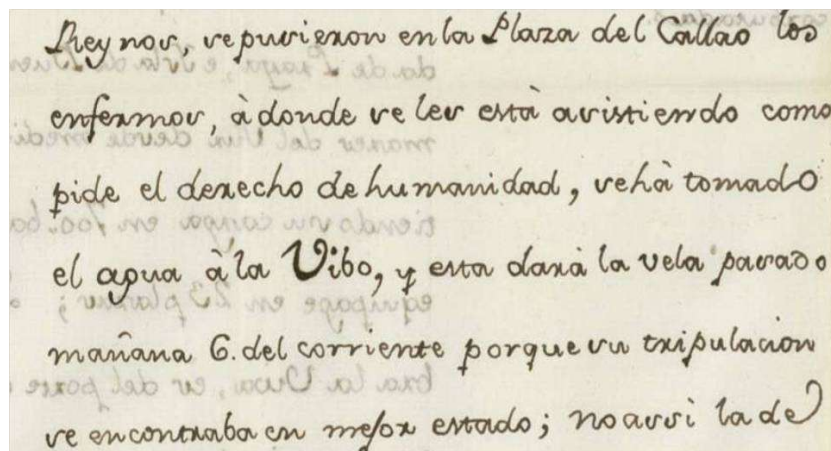 Reynos, se pusieron en la Plaza del Callao los
enfermos, à donde se les està asistiendo como
pide el derecho de humanidad, se hà tomado
el agua à la Vibo, y esta darà la vela pasado
mañana 6. del corriente porque su tripulacion
se encontraba en mejor estado; no assi la de